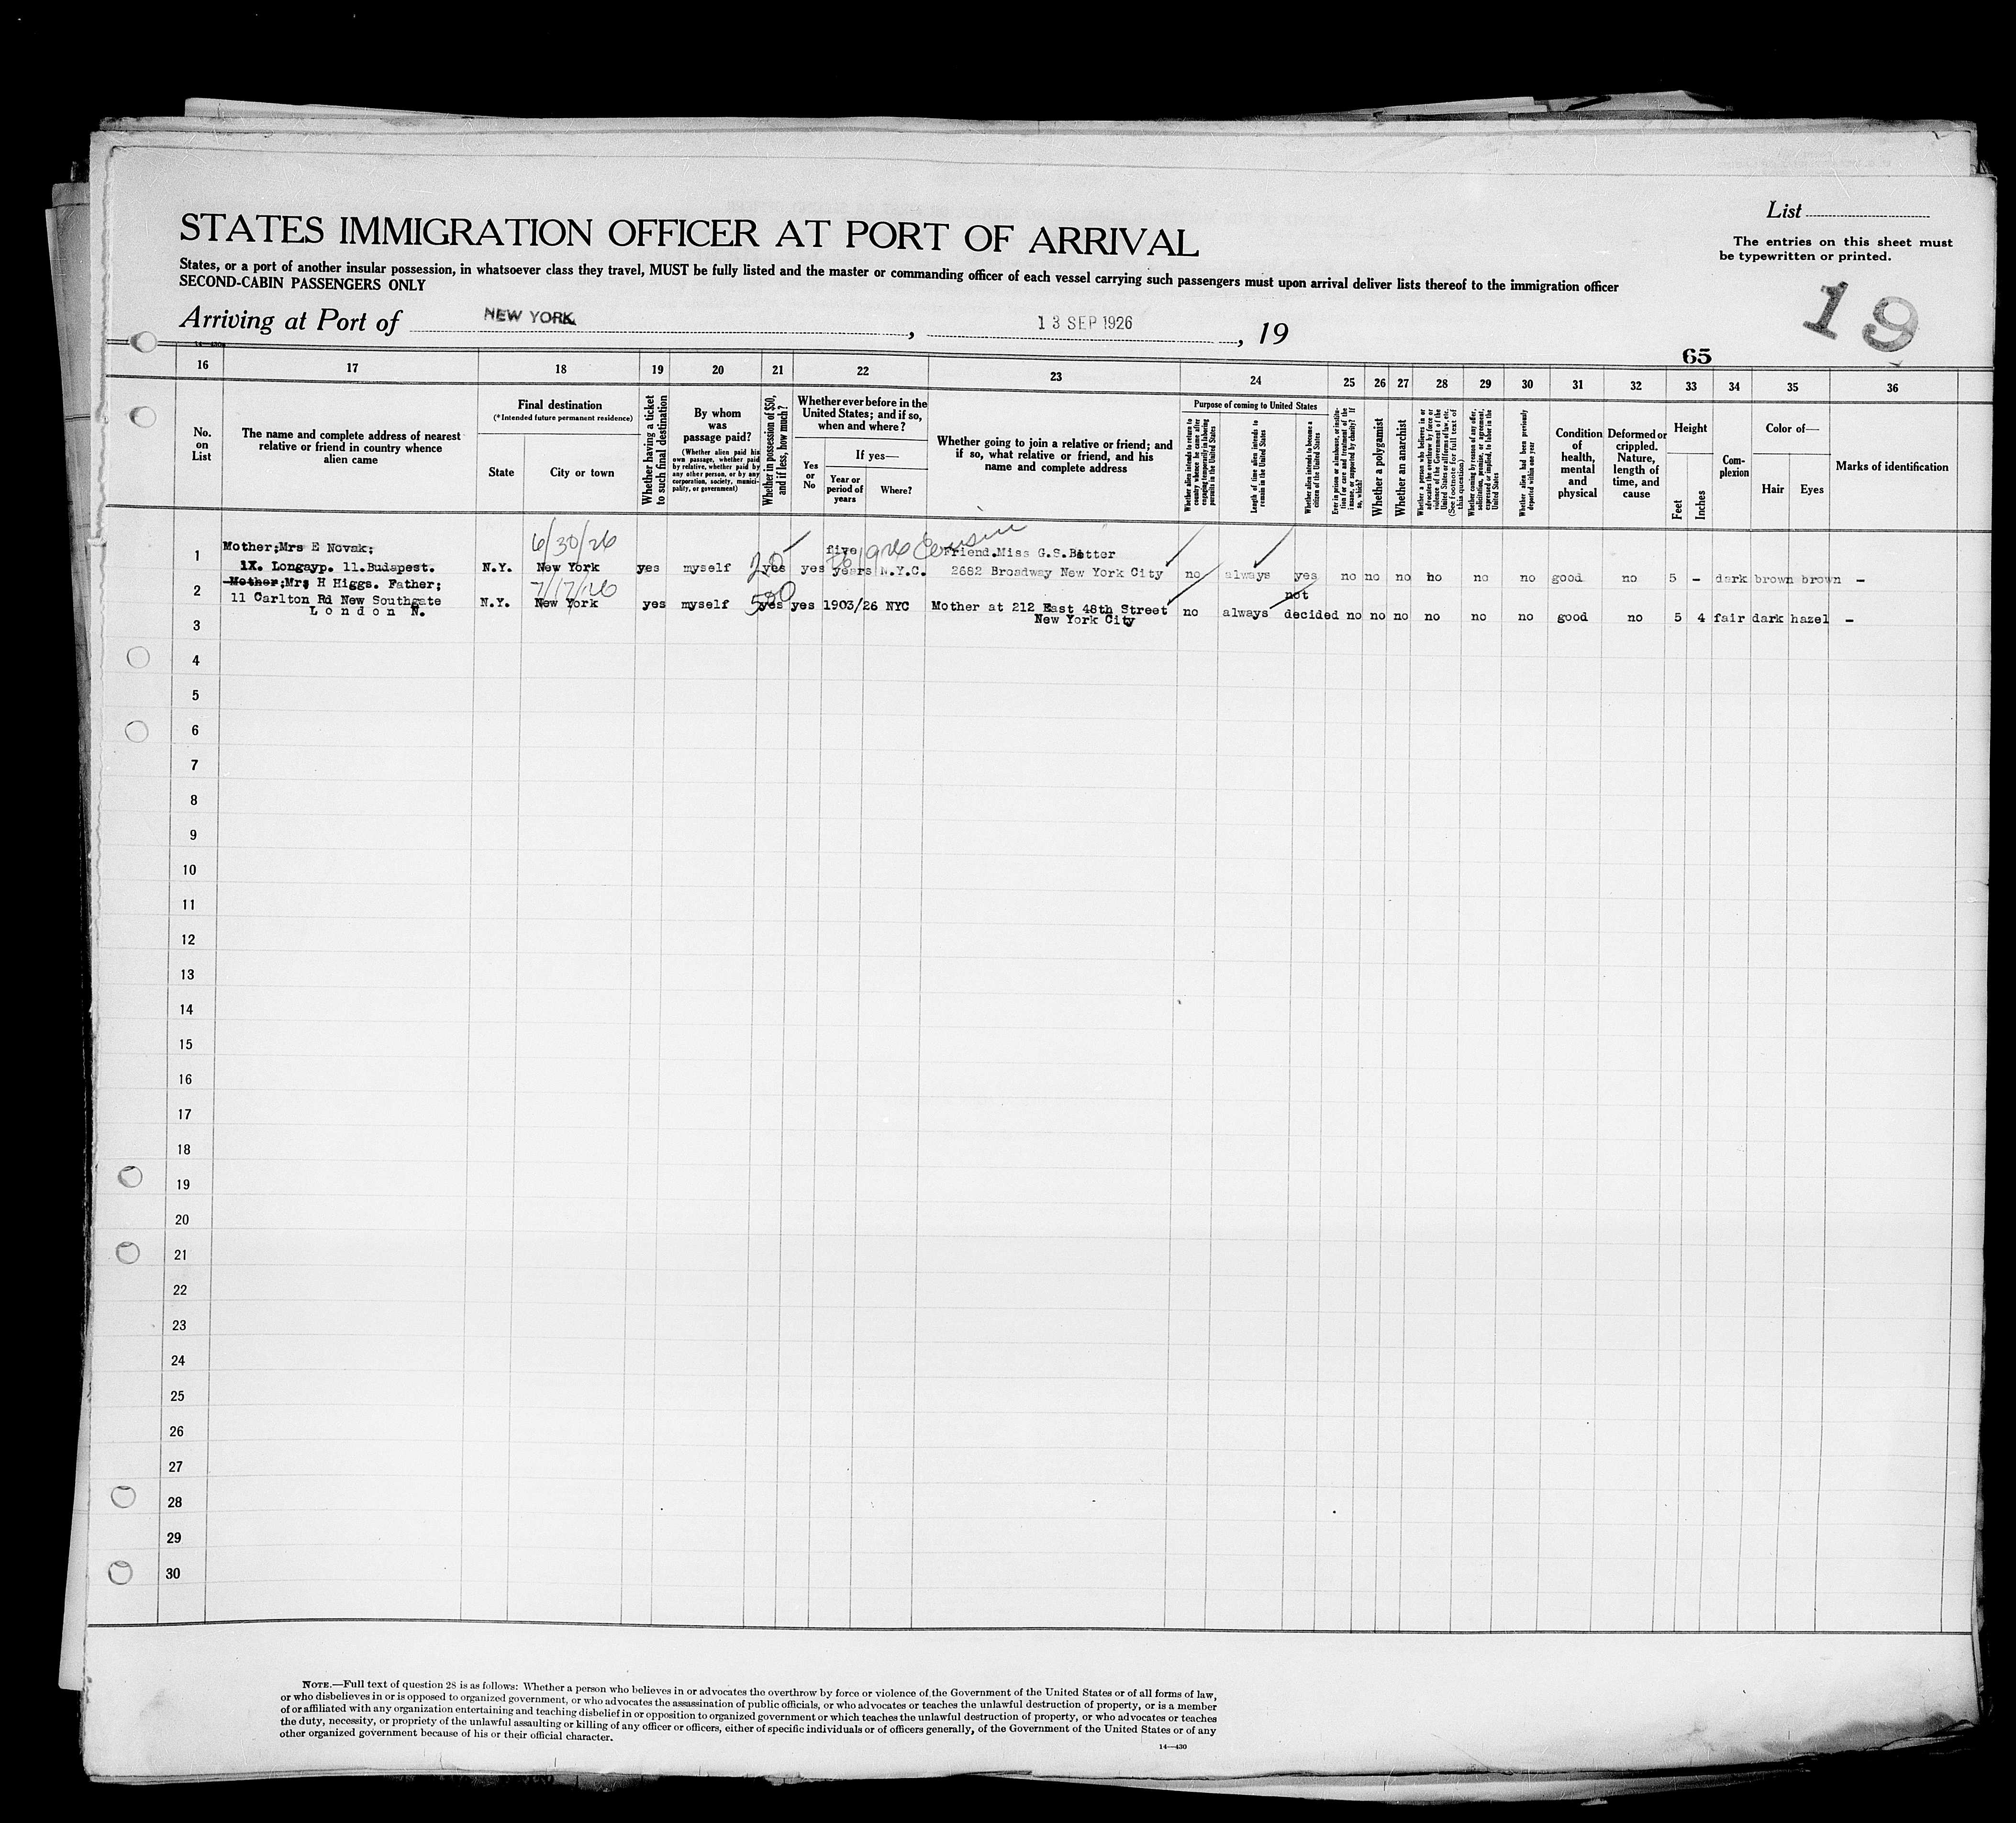 STATES IMMIGRATION OFFICER AT PORT OF ARRIVAL
List
The entries on this sheet must
be typewritten or printed.
States, or a port of another insular possession, in whatsoever class they travel, MUST be fully listed and the master or commanding officer of each vessel carrying such passengers must upon arrival deliver lists thereof to the immigration officer
SECOND-CABIN PASSENGERS ONLY
19
Arriving at Port of NEW YORK, 13 SEP 1926, 19
65
16 17 18 19 20 21 22 23 24 25 26 27 28 29 30 31 32 33 34 35 36
No.
on
List
The name and complete address of nearest
relative or friend in country whence
alien came
Final destination
(*Intended future permanent residence)
State
City or town
Whether having a ticket
to such final destination
By whom
was
passage paid?
(Whether alien paid his
own passage, whether paid
by relative, whether paid by
any other person, or by any
corporation, society, munici-
pality, or government)
Whether in possession of $50,
and if less, how much?
Whether ever before in the
United States; and if so,
when and where?
Yes
or
No
If yes—
Year or
period of
years
Where?
Whether going to join a relative or friend; and
if so, what relative or friend, and his
name and complete address
Purpose of coming to United States
Whether alien intends to return to
country whence he came after
engaging temporarily in laboring
pursuits in the United States
Length of time alien intends to
remain in the United States
Whether alien intends to become a
citizen of the United States
Ever in prison or almshouse, or institu-
tion for care and treatment of the
insane, or supported by charity? If
so, which?
Whether a polygamist
Whether an anarchist
Whether a person who believes in or
advocates the overthrow by force or
violence of the Government of the
United States or all forms of law, etc.
(See footnote for full text of
this question)
Whether coming by reason of any offer,
solicitation, promise, or agreement,
expressed or implied, to labor in the
United States
Whether alien had been previously
deported within one year
Condition
of
health,
mental
and
physical
Deformed or
crippled.
Nature,
length of
time, and
cause
Height
Feet
Inches
Com-
plexion
Color of—
Hair
Eyes
Marks of identification
6/30/26
1926 Cousin
Mother;Mrs E Novak; five Friend.Miss G.S.Better
1 1X. Longayp. 11.Budapest. N.Y. New York yes myself 20 yes yes years N.Y.C. 2682 Broadway New York City no always yes no no no no no no good no 5 - dark brown brown -
7/17/26
Mother;Mrs H Higgs. Father; not
2 11 Carlton Rd New Southgate N.Y. New York yes myself 500 yes yes 1903/26 NYC Mother at 212 East 48th Street no always decided no no no no no no good no 5 4 fair dark hazel -
London N. New York City
3
4
5
6
7
8
9
10
11
12
13
14
15
16
17
18
19
20
21
22
23
24
25
26
27
28
29
30
NOTE.—Full text of question 28 is as follows: Whether a person who believes in or advocates the overthrow by force or violence of the Government of the United States or of all forms of law,
or who disbelieves in or is opposed to organized government, or who advocates the assassination of public officials, or who advocates or teaches the unlawful destruction of property, or is a member
of or affiliated with any organization entertaining and teaching disbelief in or opposition to organized government or which teaches the unlawful destruction of property, or who advocates or teaches
the duty, necessity, or propriety of the unlawful assaulting or killing of any officer or officers, either of specific individuals or of officers generally, of the Government of the United States or of any
other organized government because of his or their official character.
14—430